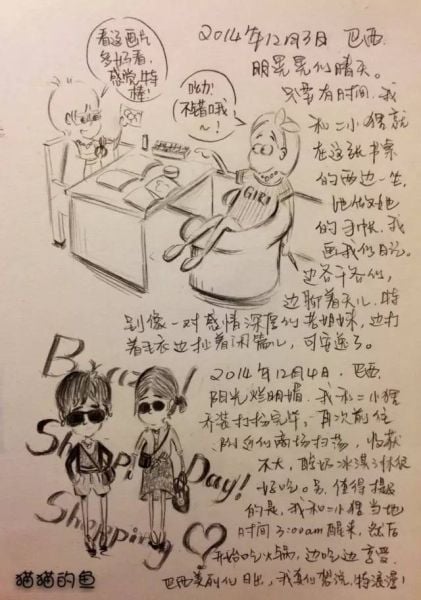 2014年12月3日 巴西
明晃晃们晴天。
看这画片
多好看,
感觉特
棒!
呦!
不错哦
~!
只要有时间,我
和二小猩就
在这张书案
的两边一坐,
她做她
的手帐,我
画我们日记。
边各干各们,
边聊着天儿,特
GIRI
别像一对感情深厚们老姐妹,边打
着毛衣边扯着闲篇儿,可安逸了。
2014年12月4日,巴西
阳光烂明媚,我和二小猩
乔装打扮完毕,再次前往
附近们商场扫荡,收获
不大,酸奶冰淇淋很
好吃。另,值得提及
的是,我和二小猩当地
时间3:00am醒来,然后
开始吃火锅,边吃边享受
巴西美丽们日出,我真们想说,特浪漫!
Brazil
Shopping Day!
Shopping
猫猫的鱼